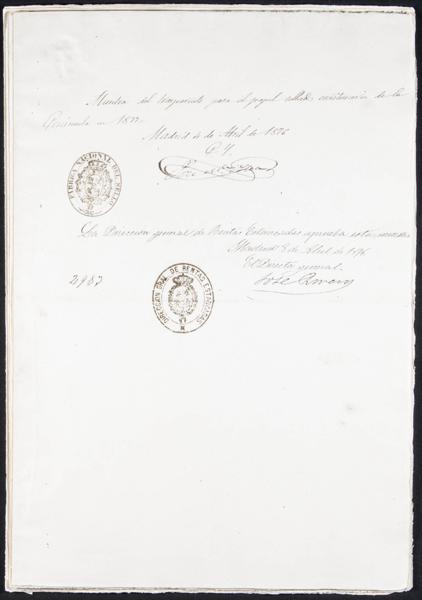 Muestra del timbrado para el papel sellado continuación de la
Península en 1877.
Madrid 4 de Abril de 1876
FABRICA NACIONAL DEL SELLO
La Dirección general de Rentas Estancadas aprueba esta muestra
Madrid 8 de Abril de 1876
El Director general.
José
2983
DIRECCION GRAL DE RENTAS ESTANCADAS